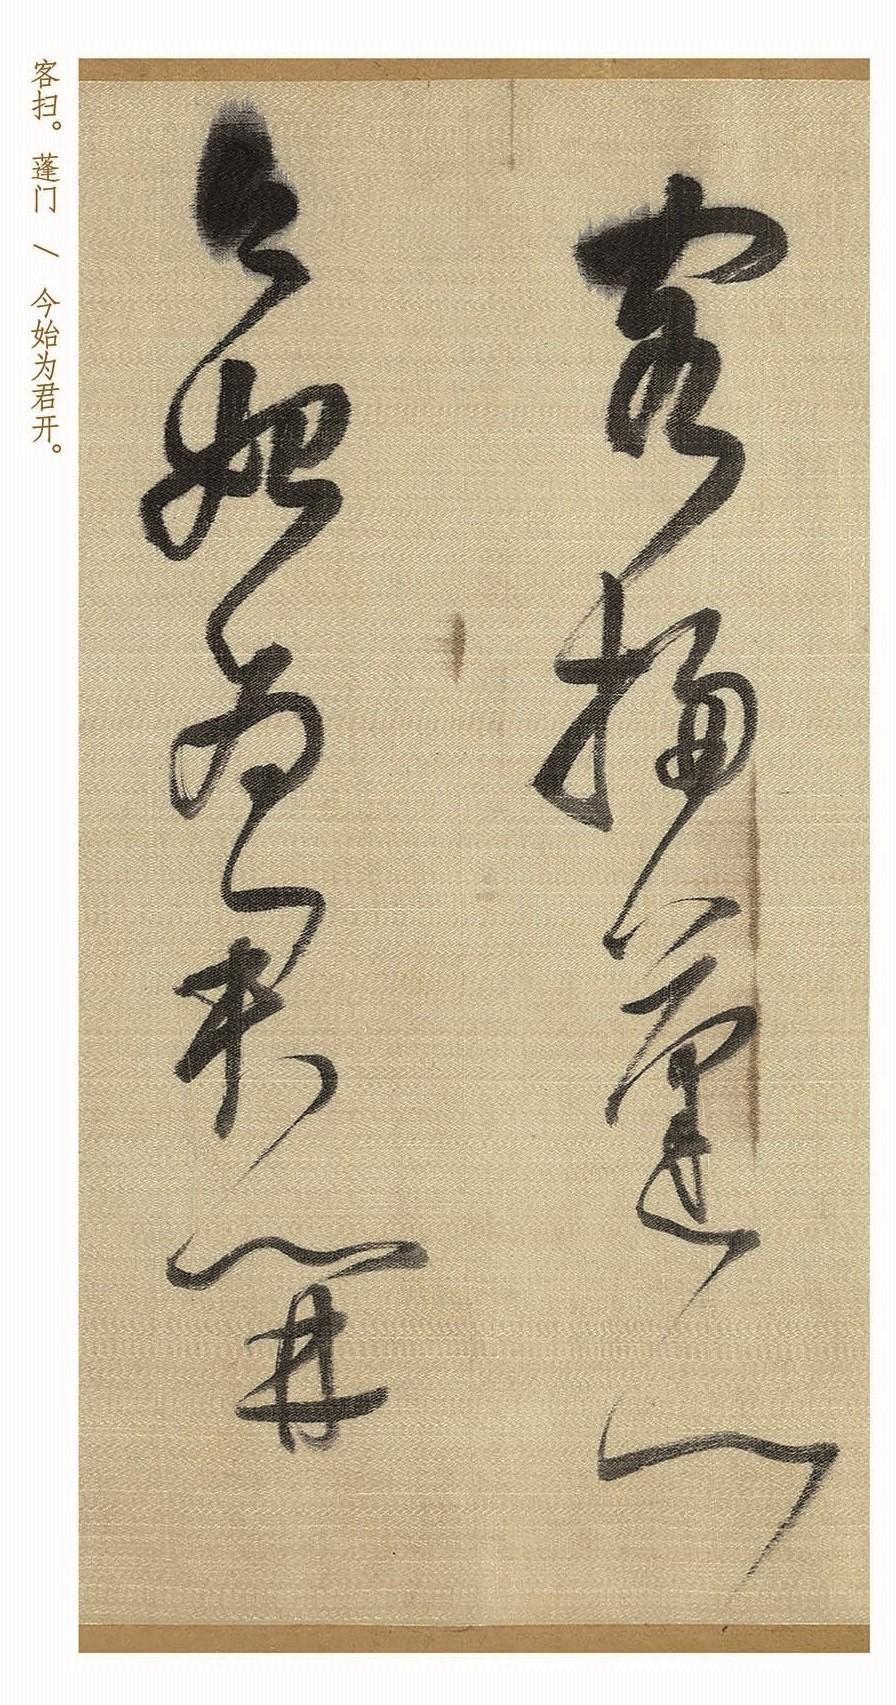 客扫。蓬门 / 今始为君开。
客掃蓬門
今始為君開